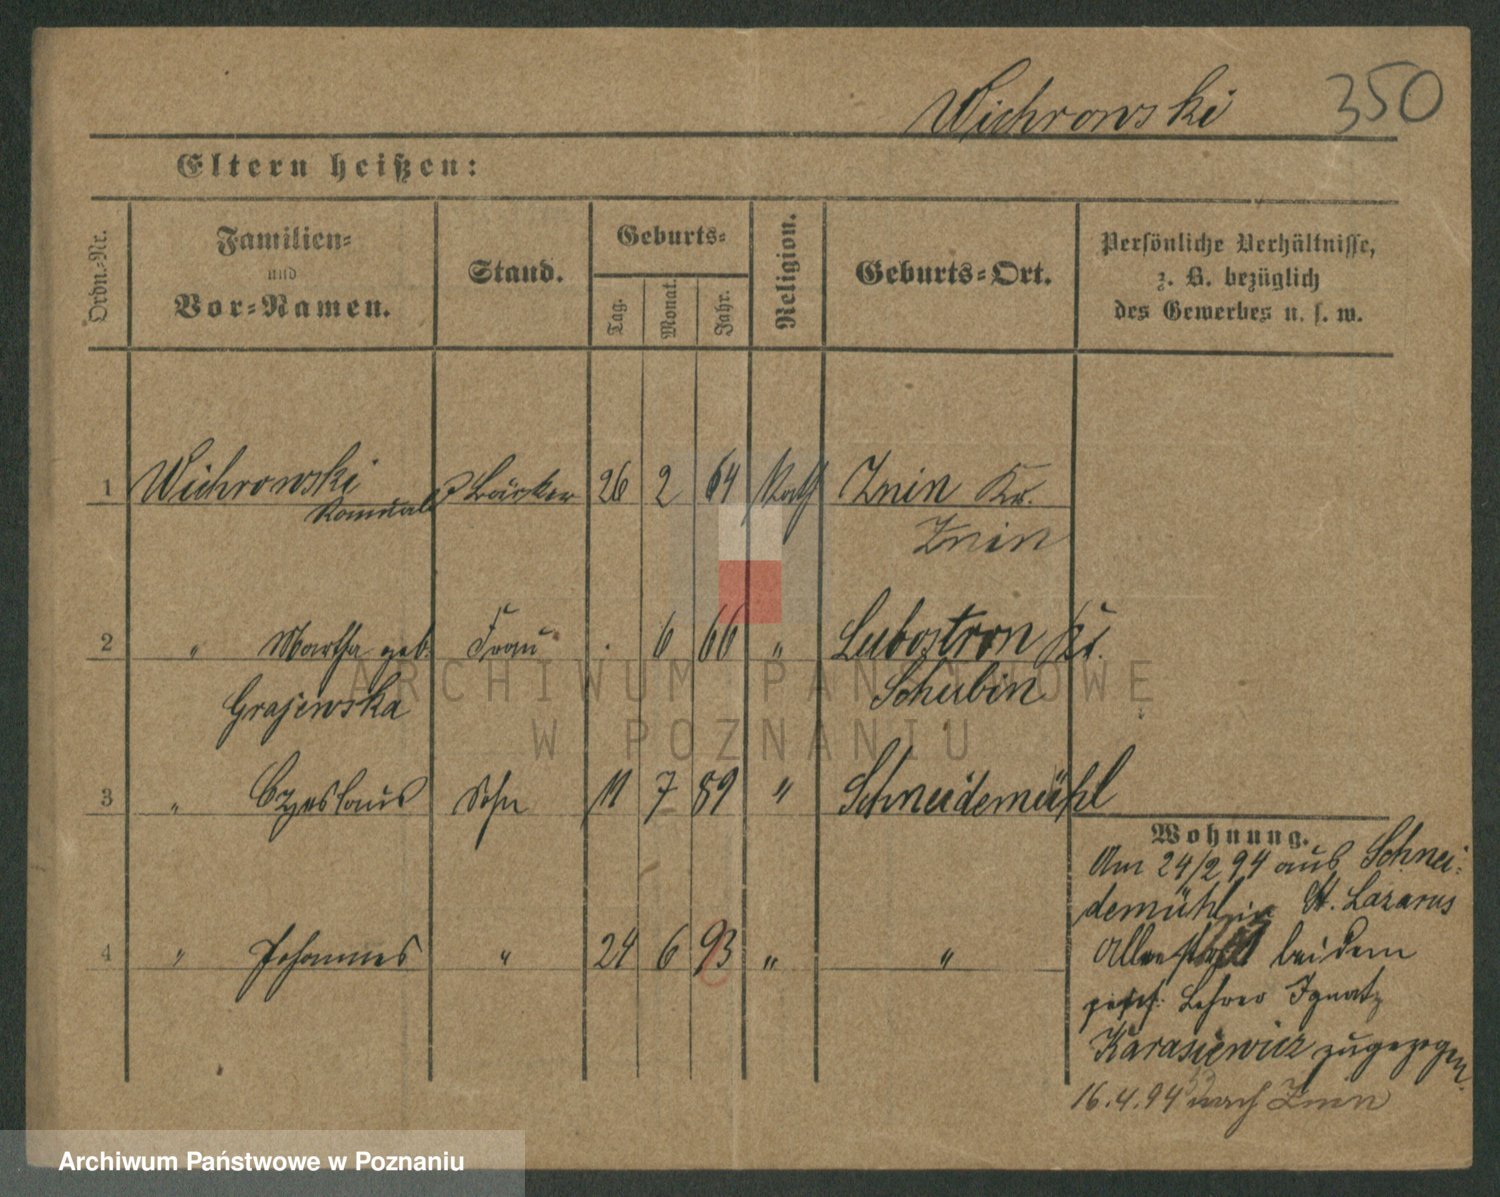 Wichrowski 350
Eltern heißen:
Ordn.-Nr.
Familien-
und
Vor-Namen.
Stand.
Geburts-
Tag.
Monat.
Jahr.
Religion.
Geburts-Ort.
Persönliche Verhältnisse,
z. B. bezüglich
des Gewerbes u. s. w.
1 Wichrowski Bäcker 26 2 64 Kath Znin Kr.
Romuald
Znin
2 " Martha geb. Frau . 6 66 " Lubostron Kr.
Grajewska Schubin
3 " Czeslaus Sohn 11 7 89 " Schneidemühl
4 " Johannes " 24 6 93 " "
Wohnung.
Am 24/2 94 aus Schnei-
demühl in St. Lazarus
bei dem
Lehrer Ignatz
Karasiewicz zugezogen.
16.4.94 nach Znin
ARCHIWUM PAŃSTWOWE
W POZNANIU
Archiwum Państwowe w Poznaniu